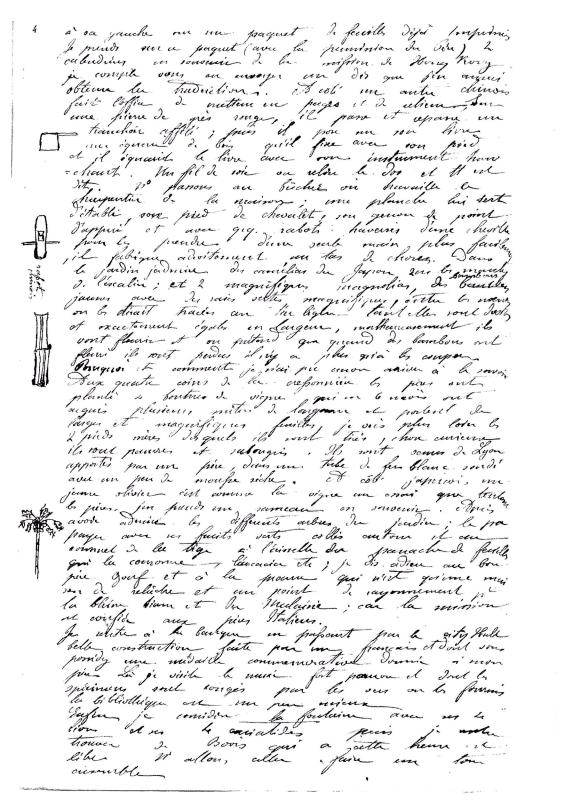 4
à sa gauche sur un paquet de feuilles déjà imprimées
Je prends sur ce paquet (avec la permission du Père) 2
calendriers en souvenir de la mission de Hong Kong
je compte vous en envoyer un dès que j'en aurai
obtenu la traduction. A côté un autre chinois
fait l'office de metteur en pages et de relieur sur
une pierre de grès rouge, il passe et repasse un
tranchoir affilé; puis il pose sur son livre
une équerre de bois qu'il fixe avec son pied
et il équarrit le livre avec son instrument
Un fil de soie on relie le dos et tout est
dit. Nous passons au bûcher où travaille le
charpentier de la maison; une planche lui sert
d'établi, son pied de chevalet, son genou de point
d'appui et avec quelques rabots traversés d'une cheville
pour les prendre d'une seule main plus facilement
il fabrique adroitement un tas de choses. Dans
le jardin j'admire des camélias du Japon
et 2 magnifiques magnolias, des bambous
rabot
chinois
jaunes avec des raies vertes magnifiques,
on les dirait tracées au tire ligne tant elles sont droites
et exactement égales en largeur, malheureusement ils
vont fleurir et on prétend que quand des bambous ont
fleuri ils sont perdus il n'y a plus qu'à les couper
Pourquoi et comment je n'ai pu encore arriver à le savoir
Aux quatre coins de la les pères ont
planté 4 boutures de vigne qui en 6 mois ont
acquis plusieurs mètres de longueur et portent de
larges et magnifiques feuilles, je vais plus loin les
2 pieds mères desquels ils sont tirés, chose curieuse
ils sont pauvres et rabougris. Ils sont venus de Lyon
apportés par un père dans un tube de fer blanc soudé
avec un peu de mousse sèche. A côté j'aperçois un
jeune olivier c'est comme la vigne un essai que tentent
les pères. J'en prends un rameau en souvenir. Après
avoir admiré les différents arbres du jardin; le pa
payer avec ses fruits verts collés autour et au
sommet de la tige à l'aisselle du panache de feuilles
qui la couronne l'araucaria etc; je dis adieu au bon
père et à la qui n'est qu'une mai
son de relâche et un point de rayonnement pr
la Chine Siam et la Malaisie; car la mission
est confiée aux pères Italiens.
Je rentre à la barque en passant par le City Hall
belle construction faite par un français et dont vous
possédez une médaille commémorative donnée à mon
père Là je visite le musée fort pauvre et dont les
spécimens sont rongés par les vers ou les fourmis
la bibliothèque est un peu mieux
Enfin je considère la fontaine avec ses 4
lions et ses 4 cariatides puis je rentre
trouver de Bovis qui a cette heure est
libre Nous allons aller faire un tour
ensemble